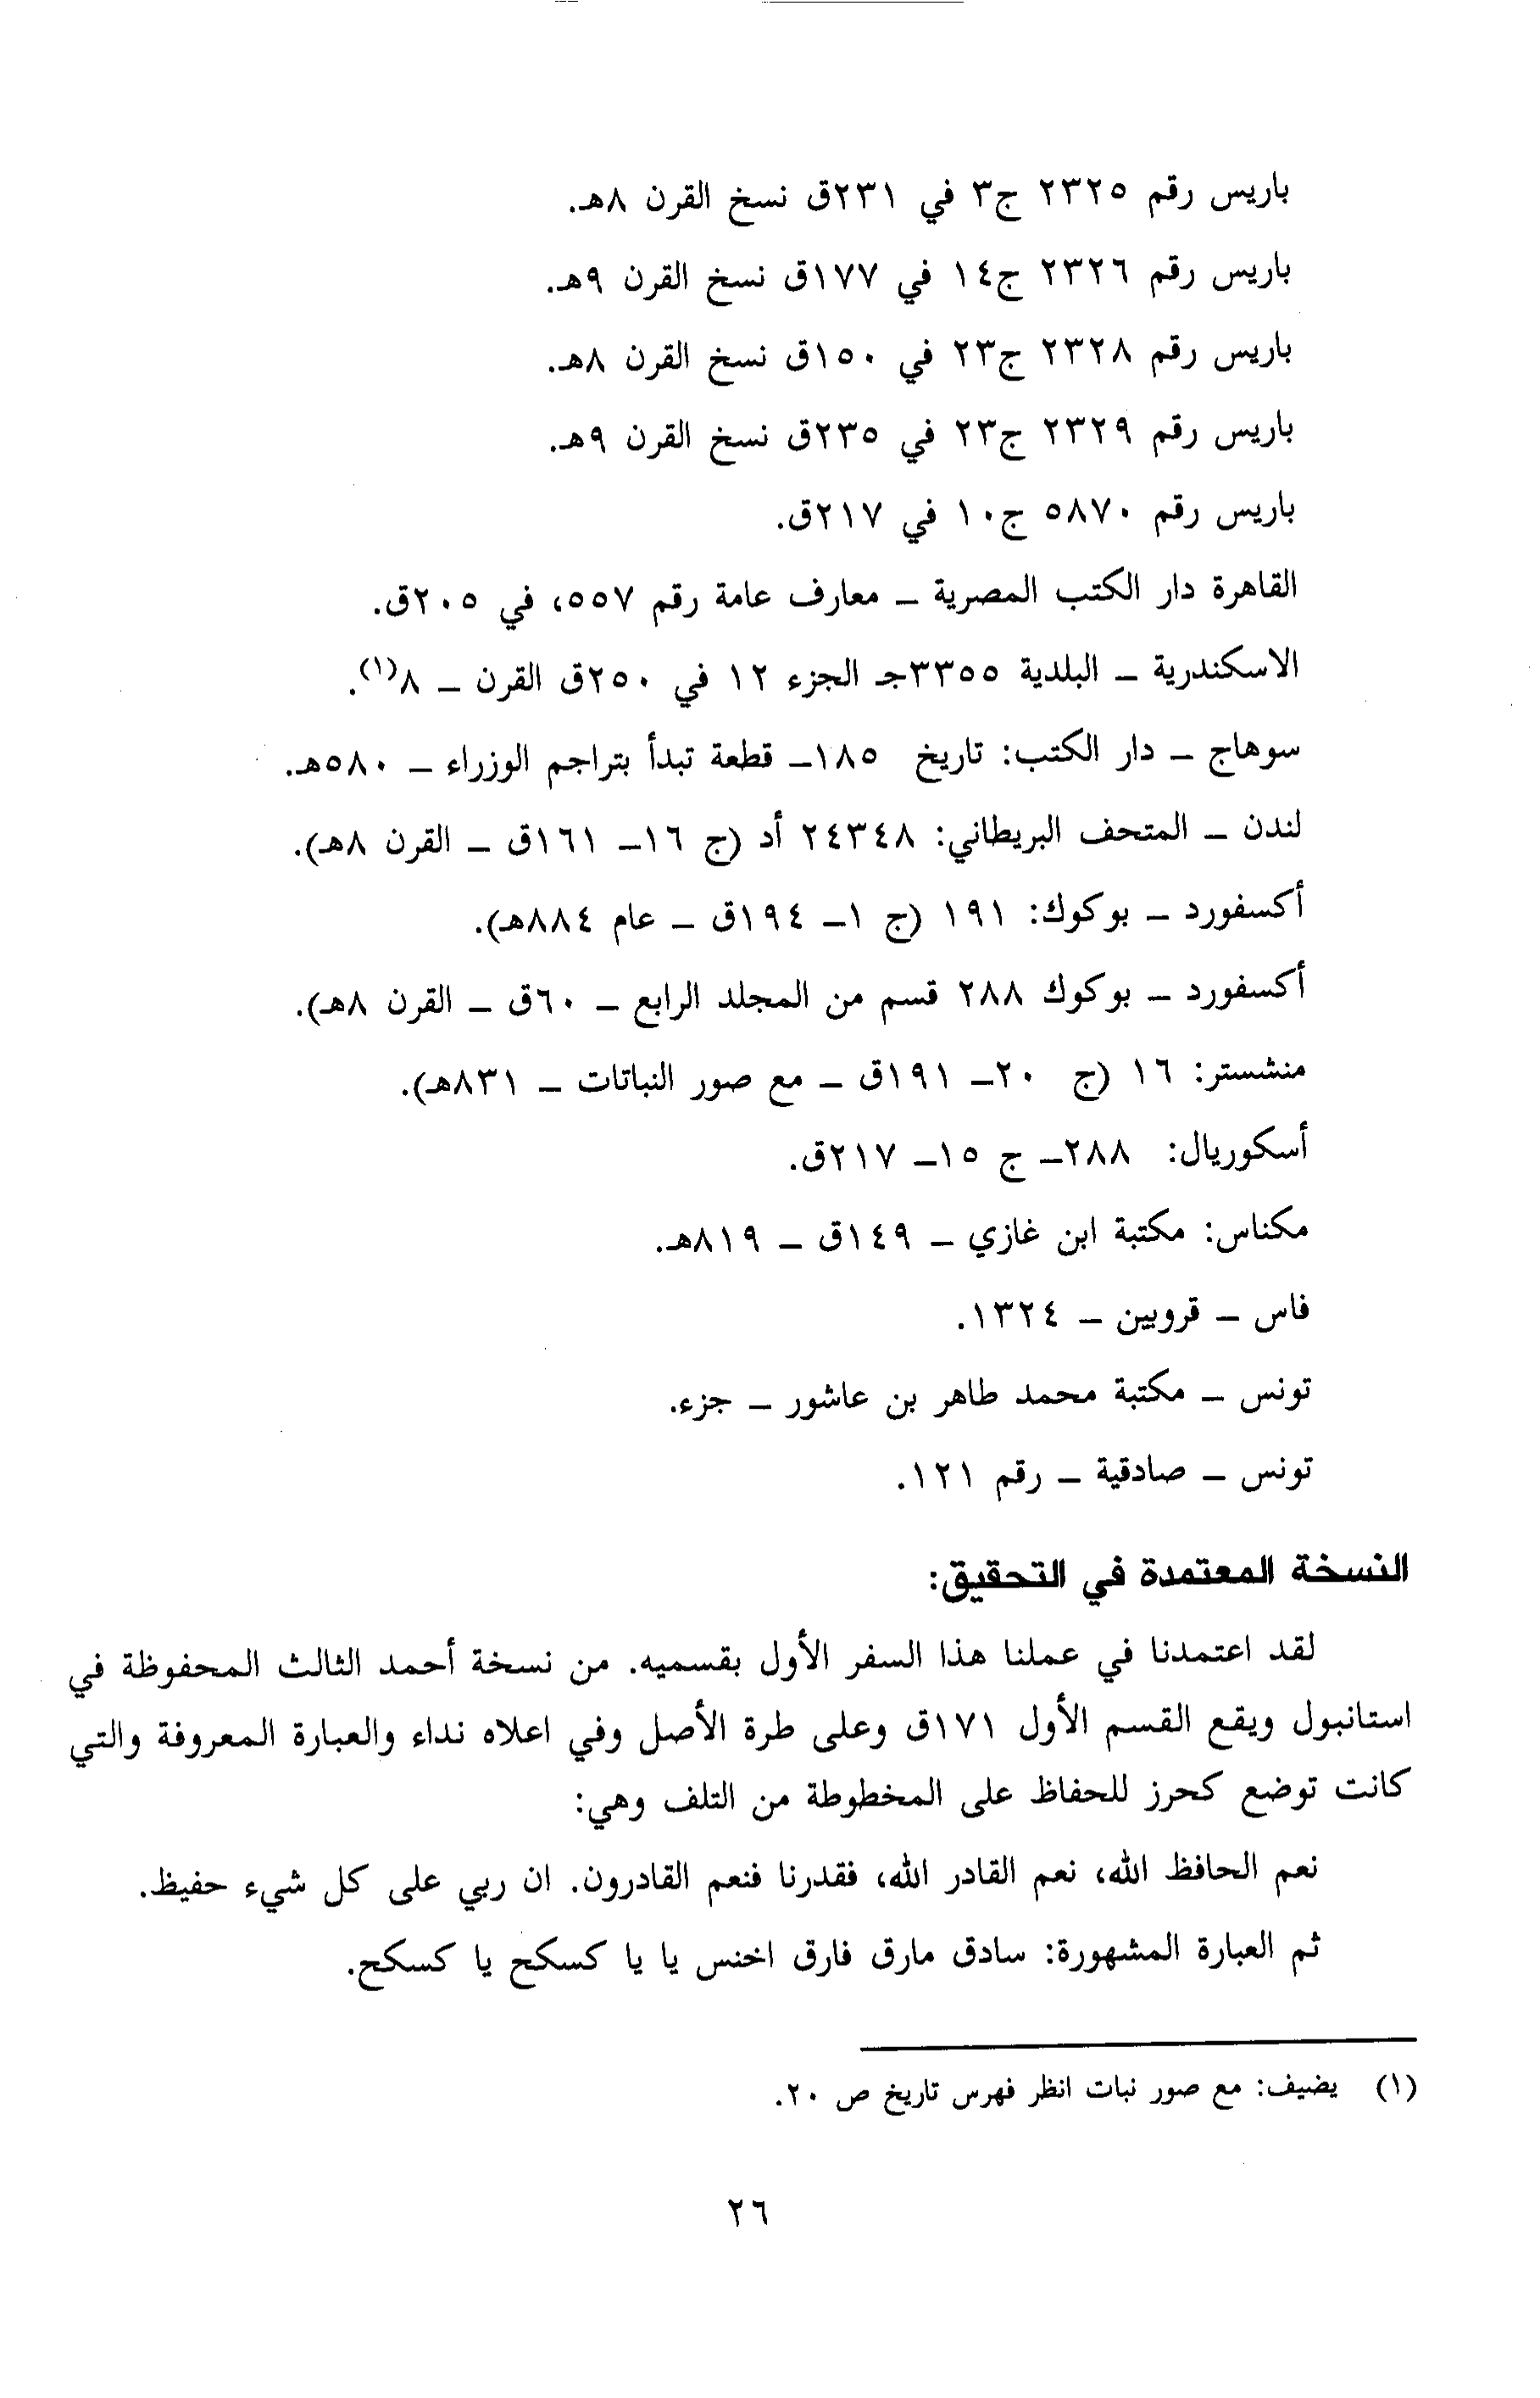 باريس رقم ٢٣٢٥ ج٣ في ٢٣١ق نسخ القرن ٨هـ.
باريس رقم ٢٣٢٦ ج١٤ في ١٧٧ق نسخ القرن ٩هـ.
باريس رقم ٢٣٢٨ ج٢٣ في ١٥٠ق نسخ القرن ٨هـ.
باريس رقم ٢٣٢٩ ج٢٣ في ٢٣٥ق نسخ القرن ٩هـ.
باريس رقم ٥٨٧٠ ج١٠ في ٢١٧ق.
القاهرة دار الكتب المصرية – معارف عامة رقم ٥٥٧، في ٢٠٥ق.
الاسكندرية – البلدية ٣٣٥٥جـ الجزء ١٢ في ٢٥٠ق القرن – ٨(١).
سوهاج – دار الكتب: تاريخ ١٨٥– قطعة تبدأ بتراجم الوزراء – ٥٨٠هـ.
لندن – المتحف البريطاني: ٢٤٣٤٨ أد (ج ١٦– ١٦١ق – القرن ٨هـ).
أكسفورد – بوكوك: ١٩١ (ج ١– ١٩٤ق – عام ٨٨٤هـ).
أكسفورد – بوكوك ٢٨٨ قسم من المجلد الرابع – ٦٠ق – القرن ٨هـ).
منشستر: ١٦ (ج ٢٠– ١٩١ق – مع صور النباتات – ٨٣١هـ).
أسكوريال: ٢٨٨– ج ١٥– ٢١٧ق.
مكناس: مكتبة ابن غازي – ١٤٩ق – ٨١٩هـ.
فاس – قرويين – ١٣٢٤.
تونس – مكتبة محمد طاهر بن عاشور – جزء.
تونس – صادقية – رقم ١٢١.
النسخة المعتمدة في التحقيق:
لقد اعتمدنا في عملنا هذا السفر الأول بقسميه. من نسخة أحمد الثالث المحفوظة في
استانبول ويقع القسم الأول ١٧١ق وعلى طرة الأصل وفي اعلاه نداء والعبارة المعروفة والتي
كانت توضع كحرز للحفاظ على المخطوطة من التلف وهي:
نعم الحافظ الله، نعم القادر الله، فقدرنا فنعم القادرون. ان ربي على كل شيء حفيظ.
ثم العبارة المشهورة: سادق مارق فارق اخنس يا يا كسكح يا كسكح.
(١) يضيف: مع صور نبات انظر فهرس تاريخ ص ٢٠.
٢٦